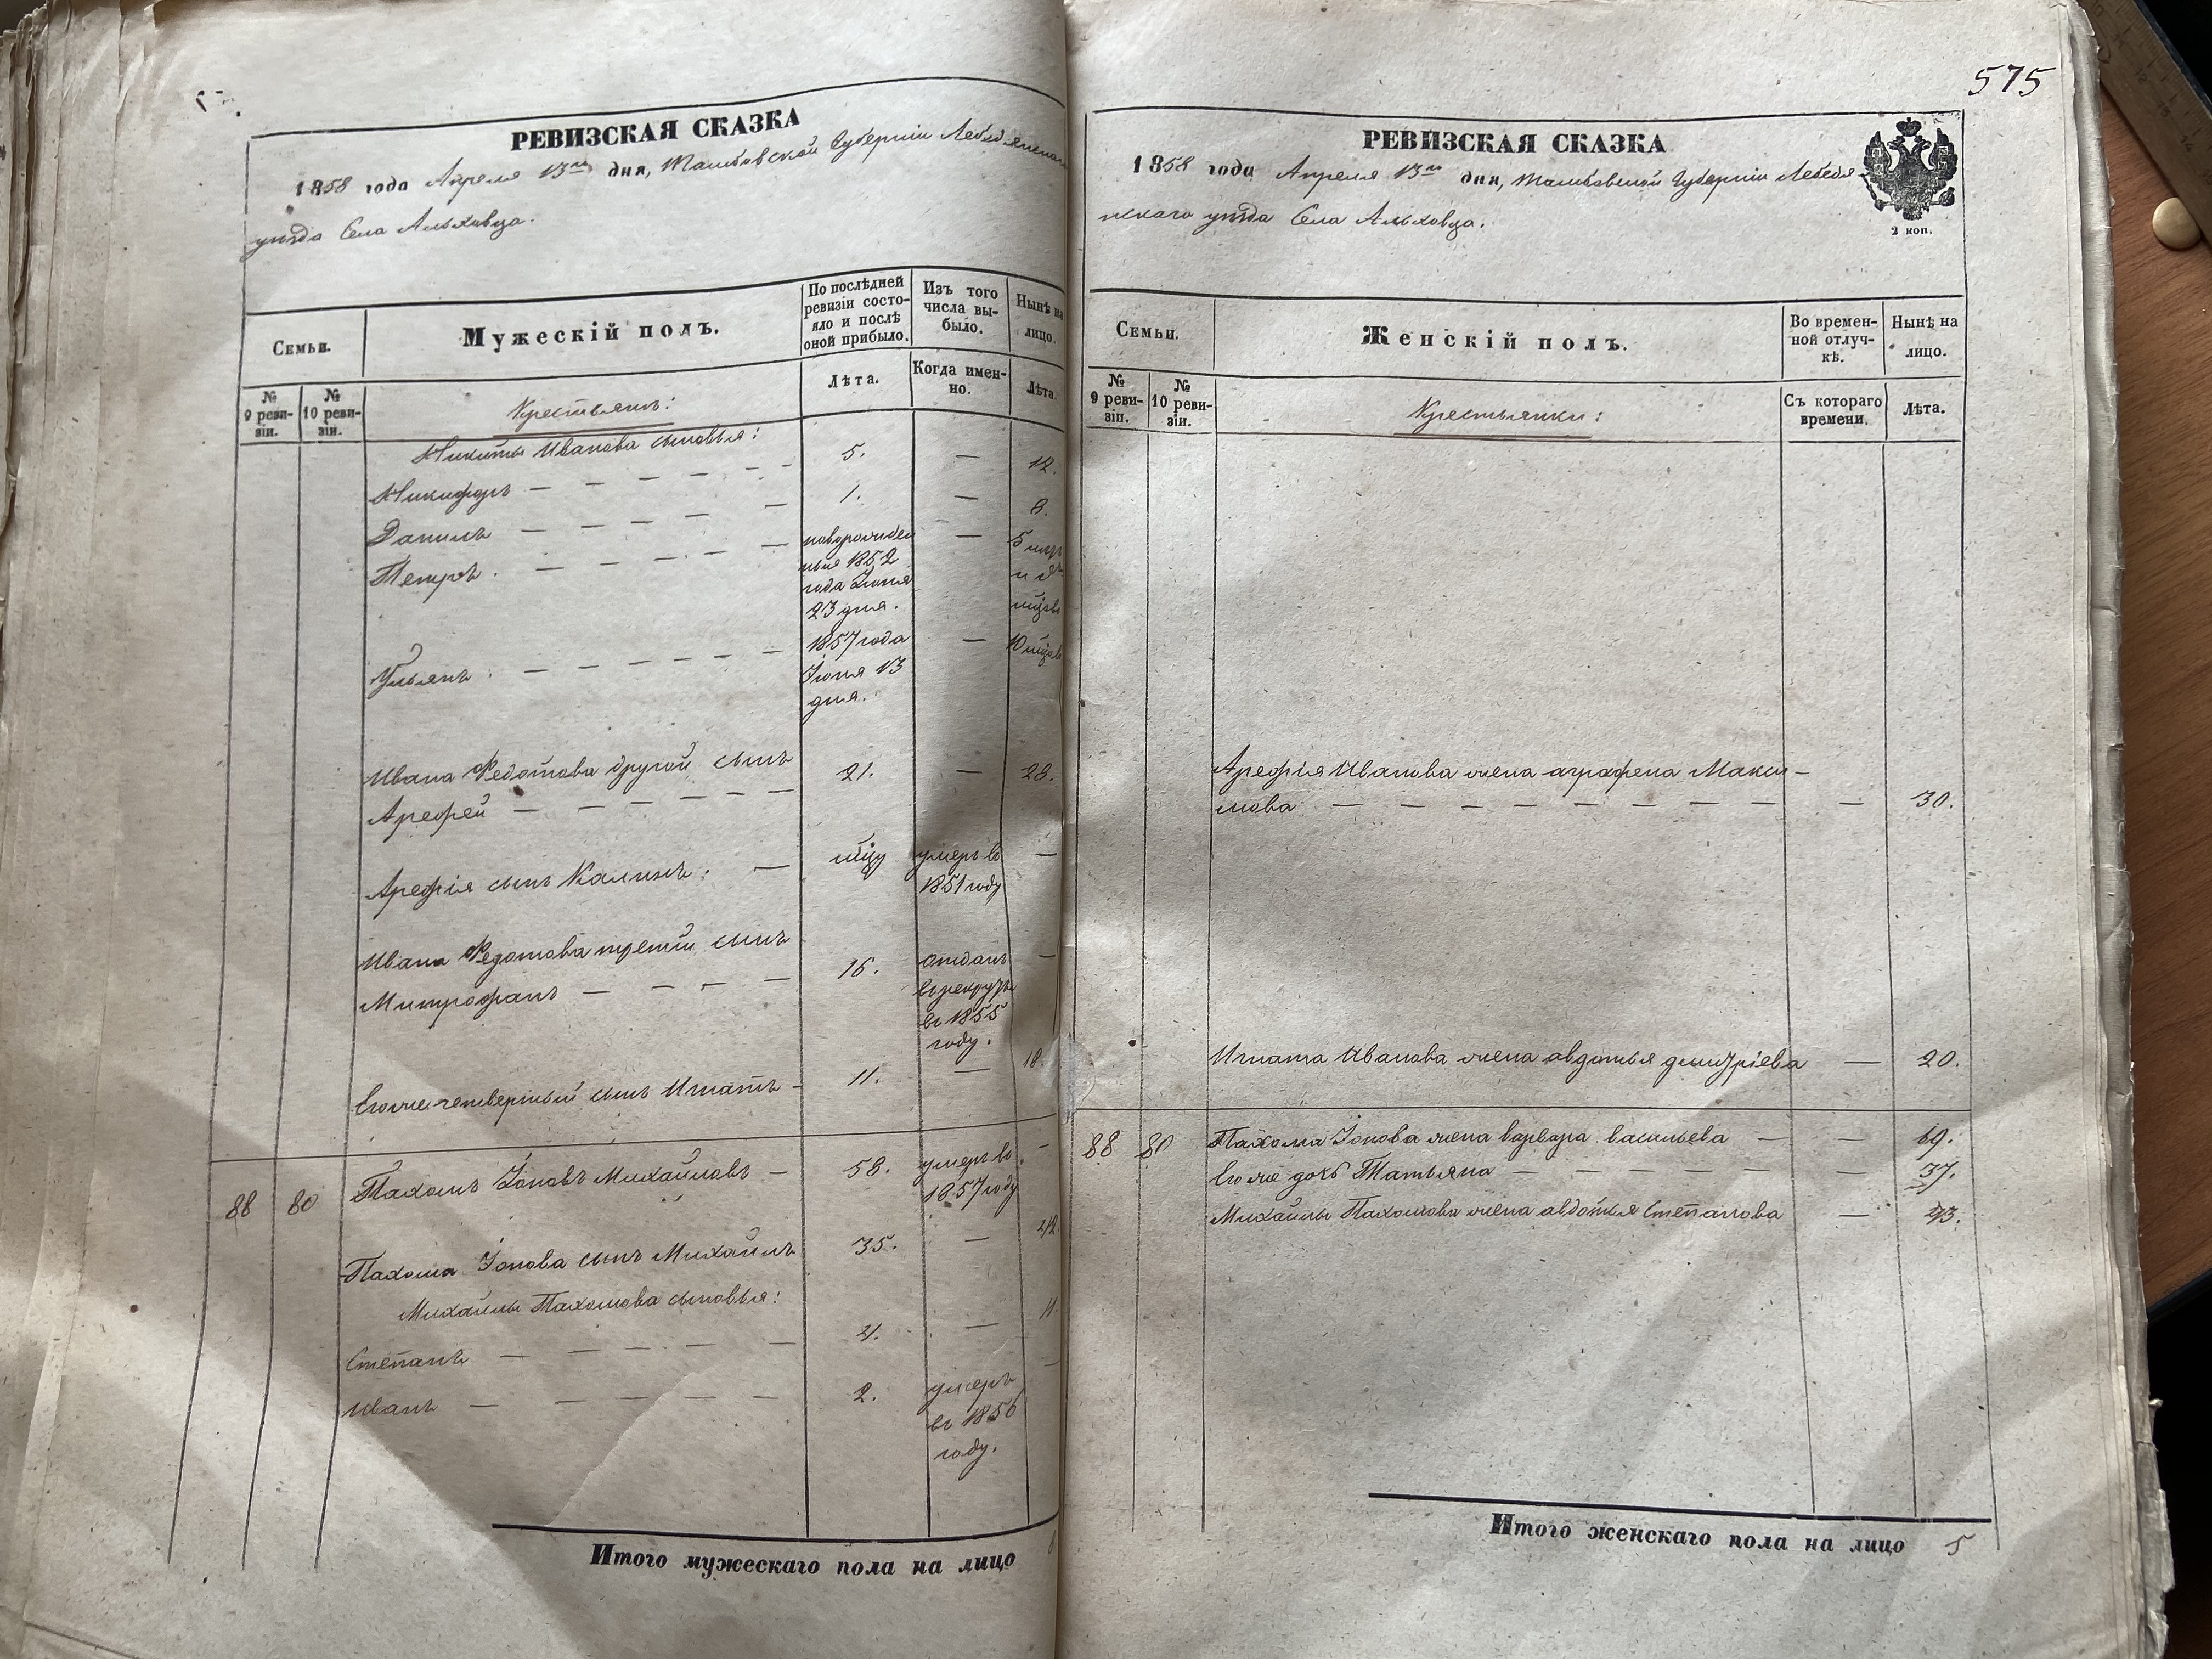 РЕВИЗСКАЯ СКАЗКА
1858 года Апреля 13го дня, Тамбовской Губерніи Лебедянскаго
уѣзда Села Альховца.
Семьи.
Мужескій полъ.
По послѣдней ревизіи состояло и послѣ оной прибыло.
Изъ того числа выбыло.
Нынѣ на лицо.
№ 9 ревизіи.
№ 10 ревизіи.
Крестьянъ:
Лѣта.
Когда именно.
Лѣта.
Никиты Иванова сыновья:
Никифоръ — — — — 5. — 12.
Данилъ — — — — — 1. — 8.
Петръ. — — — — новорожденный 1852 года Іюня 23 дня. — 5
Ульянъ. — — — — 1857 года Іюня 13 дня. — 10
Ивана Федотова другой сынъ
Арефей — — — — — 21. — 28.
Арефія сынъ Калинъ. — умеръ въ 1851 году —
Ивана Федотова третій сынъ
Митрофанъ — — — — 16. отданъ в рекруты въ 1855 году. —
Егоже четвертый сынъ Игнатъ — 11. — 18.
88 80 Пахомъ Іоновъ Михайловъ — 58. умеръ въ 1857 году —
Пахома Іонова сынъ Михайла 35. — 42
Михайлы Пахомова сыновья:
Степанъ — — — — — 4. — 11.
Иванъ — — — — 2. умеръ въ 1856 году. —
Итого мужескаго пола на лицо
575
РЕВИЗСКАЯ СКАЗКА
1858 года Апреля 13го дня, Тамбовской Губерніи Лебедя-
нскаго уѣзда Села Альховца.
2 коп.
Семьи.
Женскій полъ.
Во временной отлучкѣ.
Нынѣ на лицо.
№ 9 ревизіи.
№ 10 ревизіи.
Крестьянки:
Съ котораго времени.
Лѣта.
Арефія Иванова жена аграфена Макси-
мова — — — — — — — — — 30.
Игната Иванова жена авдотья дмитріева — 20.
88 80 Пахома Іонова жена варвара васильева — — 69.
Егоже дочь Татьяна — — — — — — 37.
Михайлы Пахомова жена авдотья Степанова — 43.
Итого женскаго пола на лицо 5